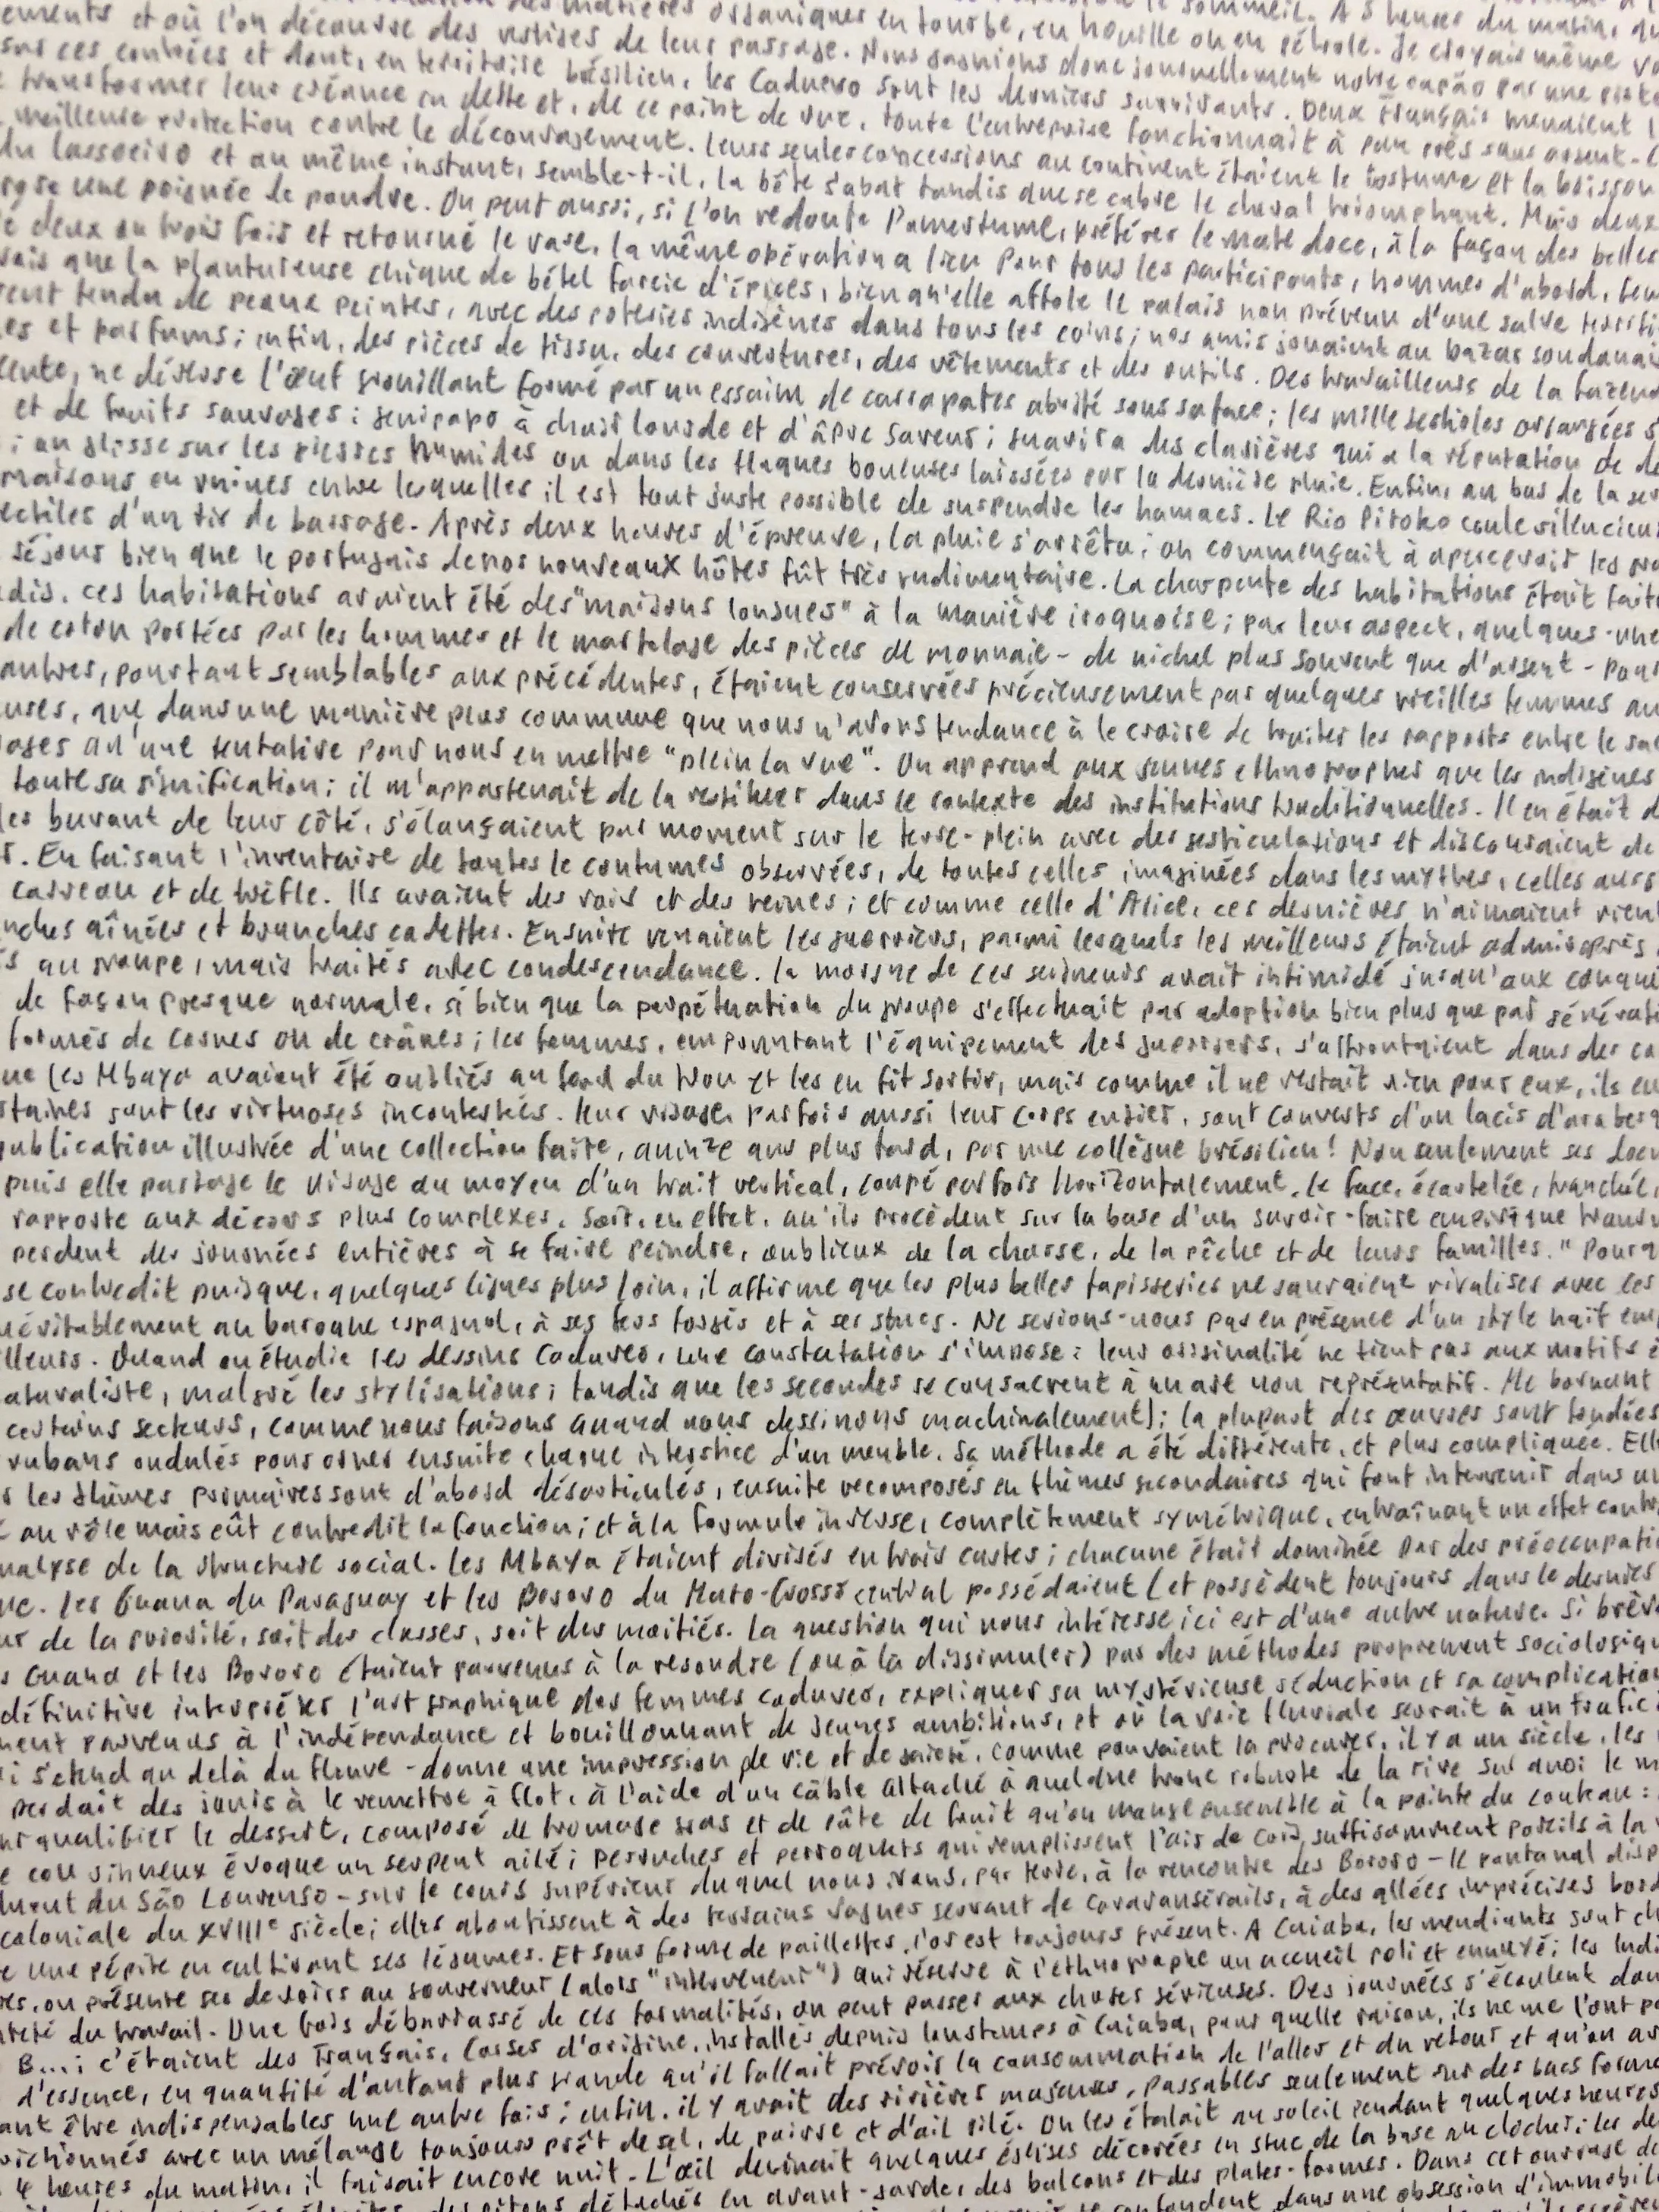 matières organiques en tourbe, en houille ou en pétrole. Je croyais même
ements et où l'on découvre des vestiges de leur passage. Nous gagnions donc journellement notre capão par une
sur ces contrées et dont, en territoire brésilien, les Caduveo sont les derniers survivants. Deux Français menaient
transformer leur créance en dette et, de ce point de vue, toute l'entreprise fonctionnait à peu près sans argent.
meilleure protection contre le découragement. Leurs seules concessions au continent étaient le costume et la boisson
du lassoeiro et au même instant, semble-t-il, la bête s'abat tandis que se cabre le cheval triomphant. Mais deux
une poignée de poudre. On peut aussi, si l'on redoute l'amertume, préférer le mate doce, à la façon des belles
deux ou trois fois et retourné le vase, la même opération a lieu pour tous les participants, hommes d'abord,
que la plantureuse chique de bétel farcie d'épices, bien qu'elle affole le palais non prévenu d'une salve
tendu de peaux peintes, avec des poteries indigènes dans tous les coins; nos amis jouaient au bazar soudanai
es et parfums; enfin, des pièces de tissu, des couvertures, des vêtements et des outils. Des travailleurs de la fazend
ne déglose l'œuf grouillant formé par un essaim de carrapates abrité sous sa face; les mille bestioles
et de fruits sauvages: genipapo à chair lourde et d'âpre saveur; guavira des clairières qui a la réputation de
; on glisse sur les pierres humides ou dans les flaques boueuses laissées par la dernière pluie. Enfin, au bas de la
maisons en ruines entre lesquelles il est tout juste possible de suspendre les hamacs. Le Rio Pitoko coule silencieu
ectiles d'un tir de barrage. Après deux heures d'épreuve, la pluie s'arrêta; on commençait à apercevoir les
séjour bien que le portugais de nos nouveaux hôtes fût très rudimentaire. La charpente des habitations était fait
adis, ces habitations avaient été des "maisons longues" à la manière iroquoise; par leur aspect, quelques-une
de coton portées par les hommes et le martelage des pièces de monnaie - de nickel plus souvent que d'argent - pour
autres, pourtant semblables aux précédentes, étaient conservées précieusement par quelques vieilles femmes au
uses, que dans une manière plus commune que nous n'avons tendance à le croire de traiter les rapports entre le sac
qu'une tentative pour nous en mettre "plein la vue". On apprend aux jeunes ethnographes que les indigènes
toute sa signification; il m'appartenait de la restituer dans le contexte des institutions traditionnelles. Il en était d
les buvant de leur côté, s'élançaient par moment sur le terre-plein avec des gesticulations et discouraient de
r. En faisant l'inventaire de toutes le coutumes observées, de toutes celles imaginées dans les mythes, celles auss
carreau et de trèfle. Ils avaient des rois et des reines; et comme celle d'Alice, ces dernières n'aimaient rien
nches aînées et branches cadettes. Ensuite venaient les guerriers, parmi lesquels les meilleurs étaient admis après
s au groupe, mais traités avec condescendance. La morgue de ces seigneurs avait intimidé jusqu'aux conqué
de façon presque normale, si bien que la perpétuation du groupe s'effectuait par adoption bien plus que par générati
formés de cornes ou de crânes; les femmes, empruntant l'équipement des guerriers, s'affrontaient dans des co
ue les Mbaya avaient été oubliés au fond du trou et les en fit sortir, mais comme il ne restait rien pour eux, ils eu
staines sont les virtuoses incontestées. Leur visage, parfois aussi leur corps entier, sont couverts d'un lacis d'arabesq
publication illustrée d'une collection faite, quinze ans plus tard, par une collègue brésilien! Non seulement ses docu
puis elle partage le visage au moyen d'un trait vertical, coupé parfois horizontalement. Le face, écartelée, tranché,
rapporte aux décors plus complexes. Soit, en effet, qu'ils procèdent sur la base d'un savoir-faire empirique trans
perdent des journées entières à se faire peindre, oublieux de la chasse, de la pêche et de leurs familles." Pourq
se contredit puisque, quelques lignes plus loin, il affirme que les plus belles tapisseries ne sauraient rivaliser avec ces
névitablement au baroque espagnol, à ses fers forgés et à ses stucs. Ne serions-nous pas en présence d'un style naïf em
lleurs. Quand on étudie les dessins Caduveo, une constatation s'impose: leur originalité ne tient pas aux motifs é
aturaliste, malgré les stylisations; tandis que les secondes se consacrent à un art non représentatif. Me bornant
certains secteurs, comme nous faisons quand nous dessinons machinalement); la plupart des œuvres sont fondées
rubans ondulés pour orner ensuite chaque interstice d'un meuble. Sa méthode a été différente, et plus compliquée. Ell
les thèmes primaires sont d'abord désarticulés, ensuite recomposés en thèmes secondaires qui font intervenir dans un
au rôle mais eût contredit la fonction; et à la formule inverse, complètement symétrique, entraînant un effet contr
nalyse de la structure social. Les Mbaya étaient divisés en trois castes; chacune était dominée par des préoccupati
ue. Les Guana du Paraguay et les Bororo du Mato-Grosso central possédaient (et possèdent toujours dans le dernier
ur de la priorité, soit des classes, soit des moitiés. La question qui nous intéresse ici est d'une autre nature. Si brèv
s Guana et les Bororo étaient parvenus à la resoudre (ou à la dissimuler) par des méthodes proprement sociologiqu
définitive interpréter l'art graphique des femmes caduveo, expliquer sa mystérieuse séduction et sa complication
ment parvenus à l'indépendance et bouillonnant de jeunes ambitions, et où la voie fluviale servait à un trafic
i s'étend au delà du fleuve - donne une impression de vie et de gaieté, comme pouvaient la procurer, il y a un siècle, les
perdait des jours à le remettre à flot, à l'aide d'un câble attaché à quelque tronc robuste de la rive sur quoi le
ur qualifier le dessert, composé de fromage gras et de pâte de fruit qu'on mange ensemble à la pointe du couteau:
e cou sinueux évoque un serpent ailé; perruches et perroquets qui remplissent l'air de cris, suffisamment pareils à la
São Lourenso - sur le cours supérieur duquel nous irons, par terre, à la rencontre des Bororo - le pantanal disp
coloniale du XVIIIe siècle; elles aboutissent à des terrains vagues servant de caravansérails, à des allées imprécises bord
e une pépite en cultivant ses légumes. Et sous forme de paillettes, l'or est toujours présent. A Cuiaba, les mendiants sont ch
res, on présente ses devoirs au gouverneur (alors "interveneur") qui réserve à l'ethnographe un accueil poli et ennuyé; les Indi
du travail. Une fois débarrassé de ces formalités, on peut passer aux choses sérieuses. Des journées s'écoulent dan
B...; c'étaient des Français, Corses d'origine, installés depuis longtemps à Cuiaba, pour quelle raison, ils ne me l'ont pa
d'essence, en quantité d'autant plus grande qu'il fallait prévoir la consommation de l'aller et du retour et qu'on
ant être indispensables une autre fois; enfin, il y avait des rivières majeures, passables seulement sur des bacs formé
avec un mélange toujours prêt de sel, de poivre et d'ail pilé. On les étalait au soleil pendant quelques heures
4 heures du matin, il faisait encore nuit. L'œil devinait quelques églises décorées en stuc de la base au clocher; les
pitons détachés en avant-garde, des balcons et des plates-formes. Dans cet ouvrage de
se confondent dans une obsession d'immobil